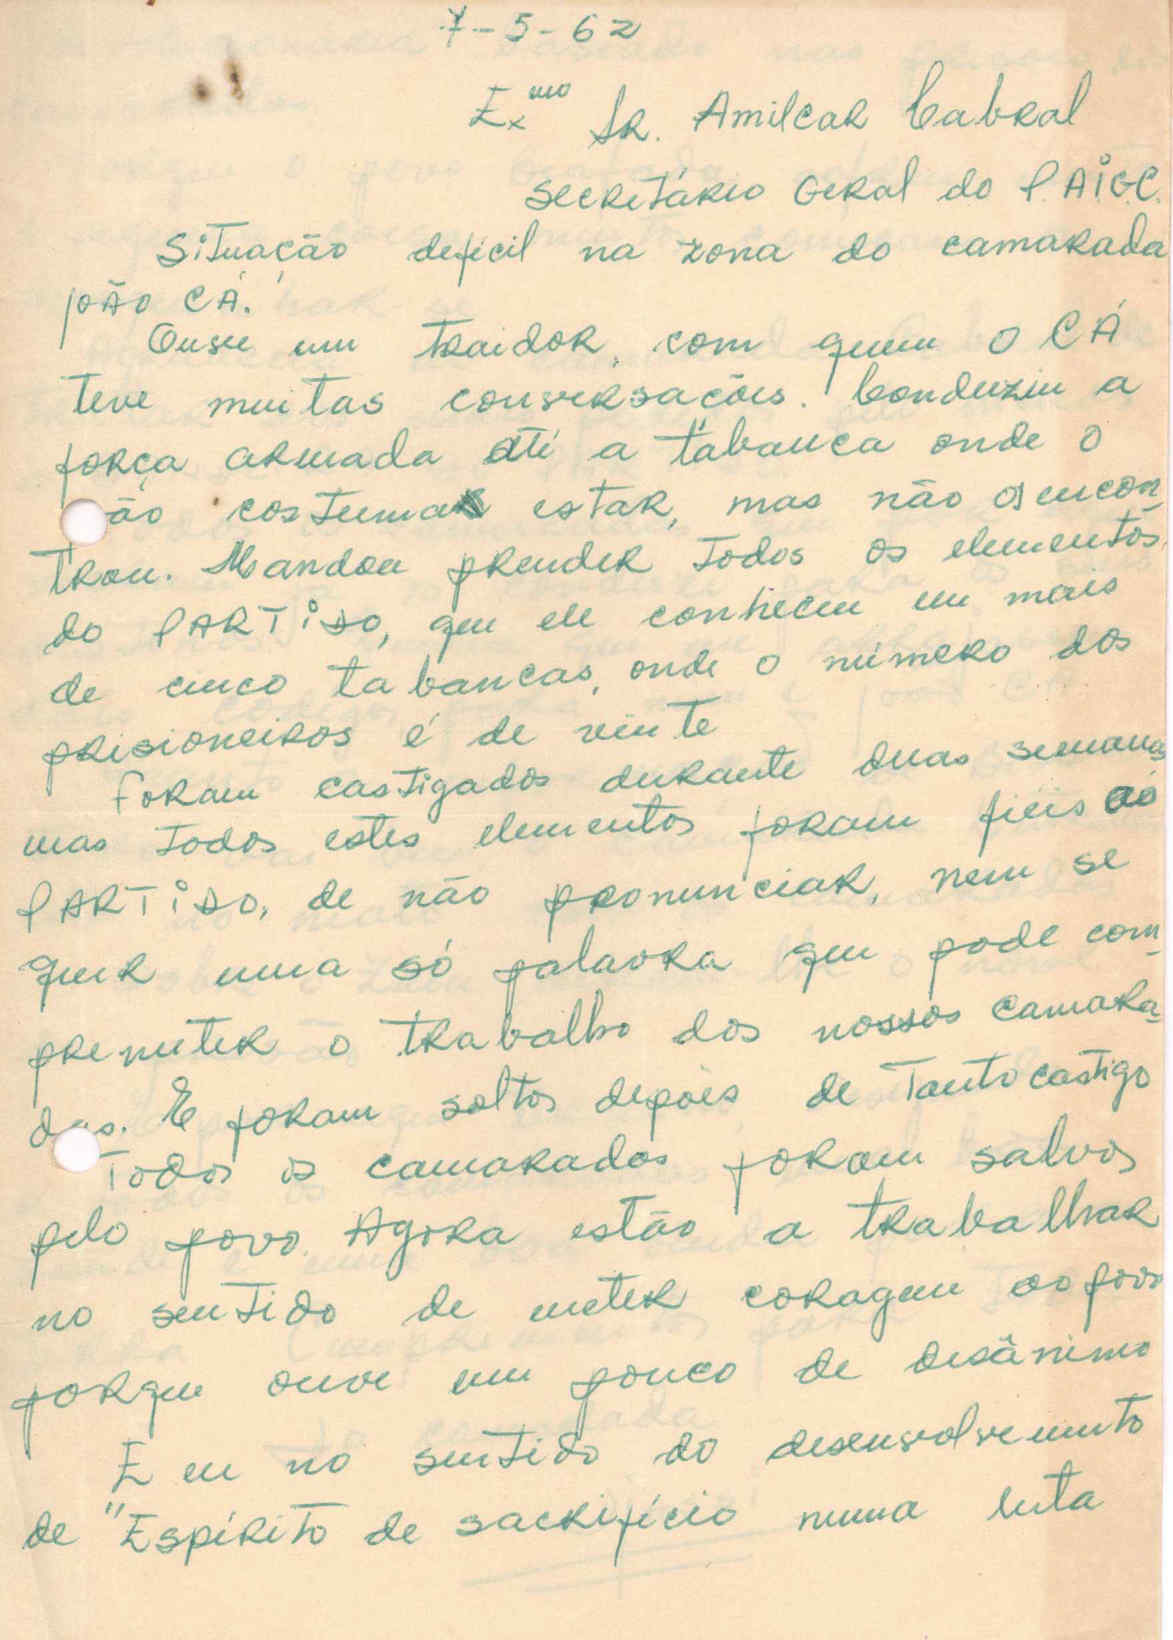 7-5-62
Exmo Sr. Amilcar Cabral
Secretário Geral do P.A.I.G.C.
Situação deficil na zona do camarada
João CÁ.
Ouve um traidor, com quem o CÁ
teve muitas conversações. Conduziu a
força armada até a tabanca onde o
ão costuma estar, mas não o encon-
trou. Mandou prender todos os elementos
do PARTIDO, que ele conhecem em mais
de cinco tabancas, onde o número dos
prisioneiros é de vinte
Foram castigados durante duas semanas
mas todos estes elementos foram fiéis ao
PARTIDO, de não pronunciar, nem se
quer uma só palavra que pode com-
premeter o trabalho dos nossos camara-
das. E foram soltos depois de tanto castigo
Todos os camaradas foram salvos
pelo povo. Agora estão a trabalhar
no sentido de meter coragem ao povo
porque ouve um pouco de desânimo
E eu no sentido do desenvolvemento
de "Espírito de sacrifício numa luta